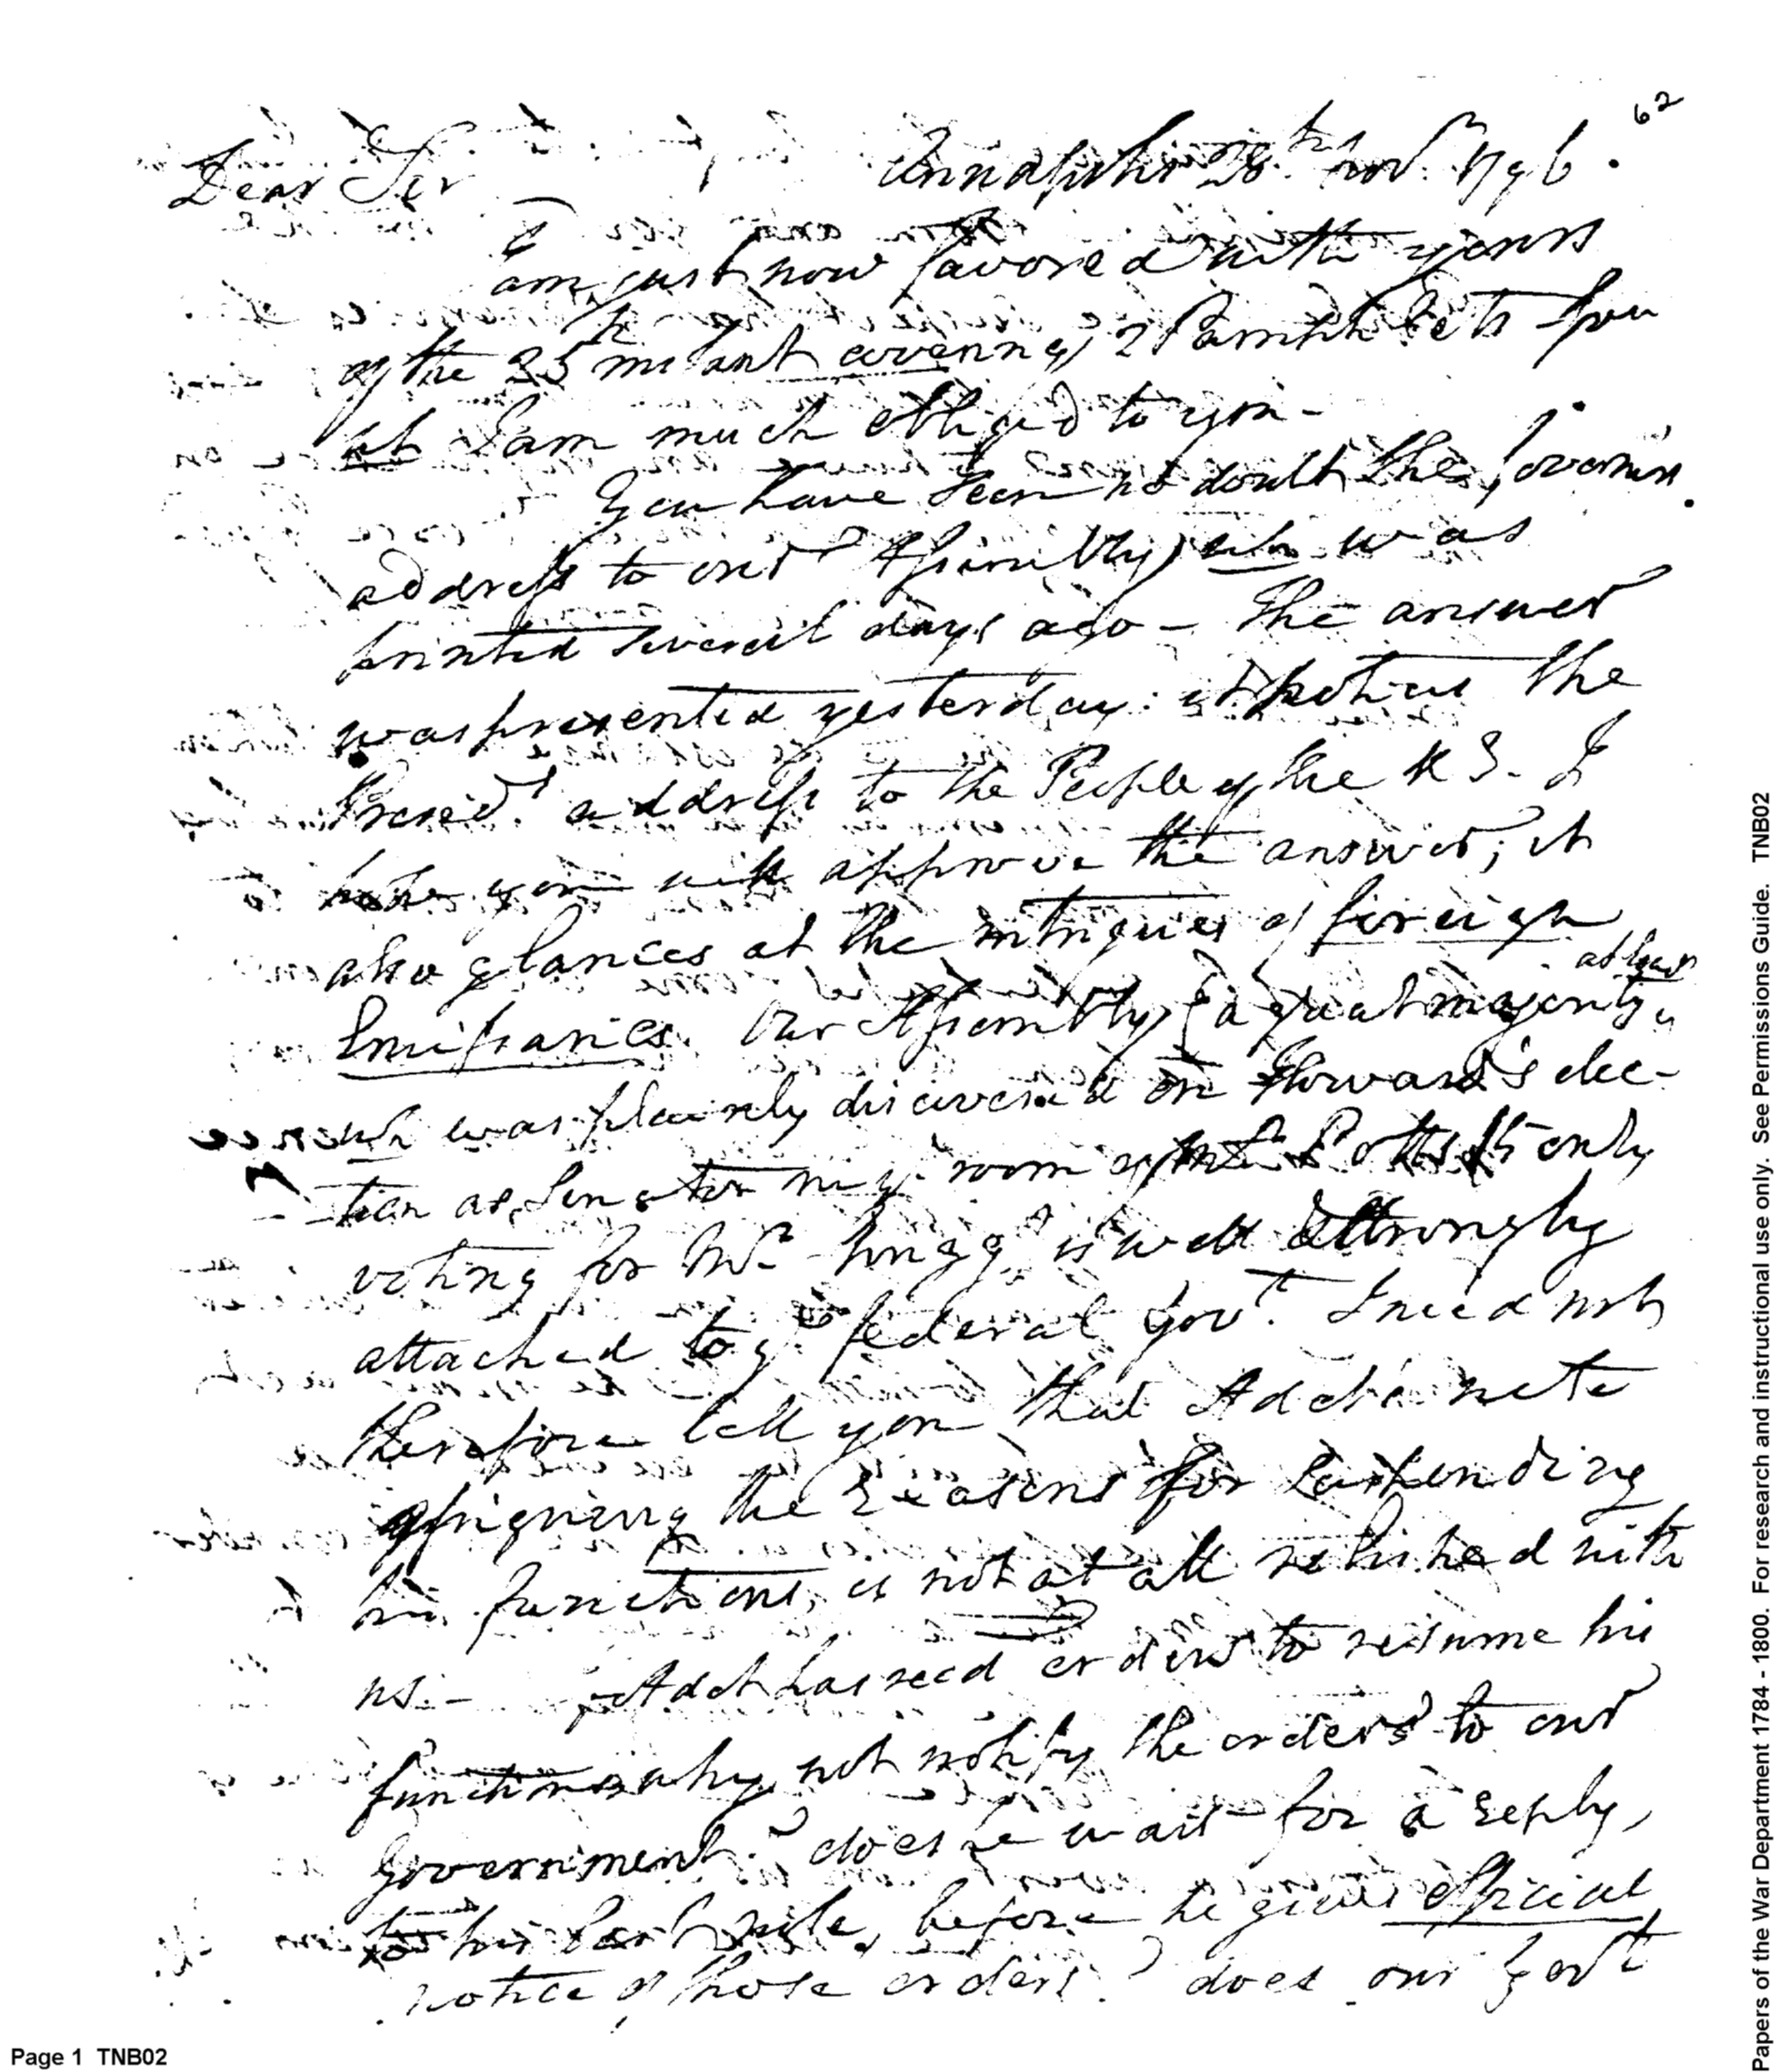 62
Dear Sir Annapolis 28th Nov. 1796.
I
am just now favored with yours
of the 25th instant covering 2 Pamphlets for
wh I am much obliged to you -
You have seen no doubt the Governrs.
address to our Assembly, wh was
printed several days ago - The answer
was presented yesterday: it notices the
Presidt. address to the People of the U S. I
hope you will approve the answer; it
also glances at the intrigues of foreign
Emissaries. Our Assembly, (a great majority at least
wh was plainly discovered on Howard's elec-
tion as Senator in ye. room of Mr Potts 15 only
voting for Mr. Sprigg) is well & strongly
attached to ye. federal Govt. I need not
therefore tell you that Adet's note
assigning the reasons for suspending
his functions, is not at all relished with
us. - If Adet has recd orders to resume his
functions why not notify the orders to our
Government? does he wait for a reply,
to his last note, before he gives official
notice of those orders? does our Govt
Page 1 TNB02
Papers of the War Department 1784 - 1800. For research and instructional use only. See Permissions Guide. TNB02